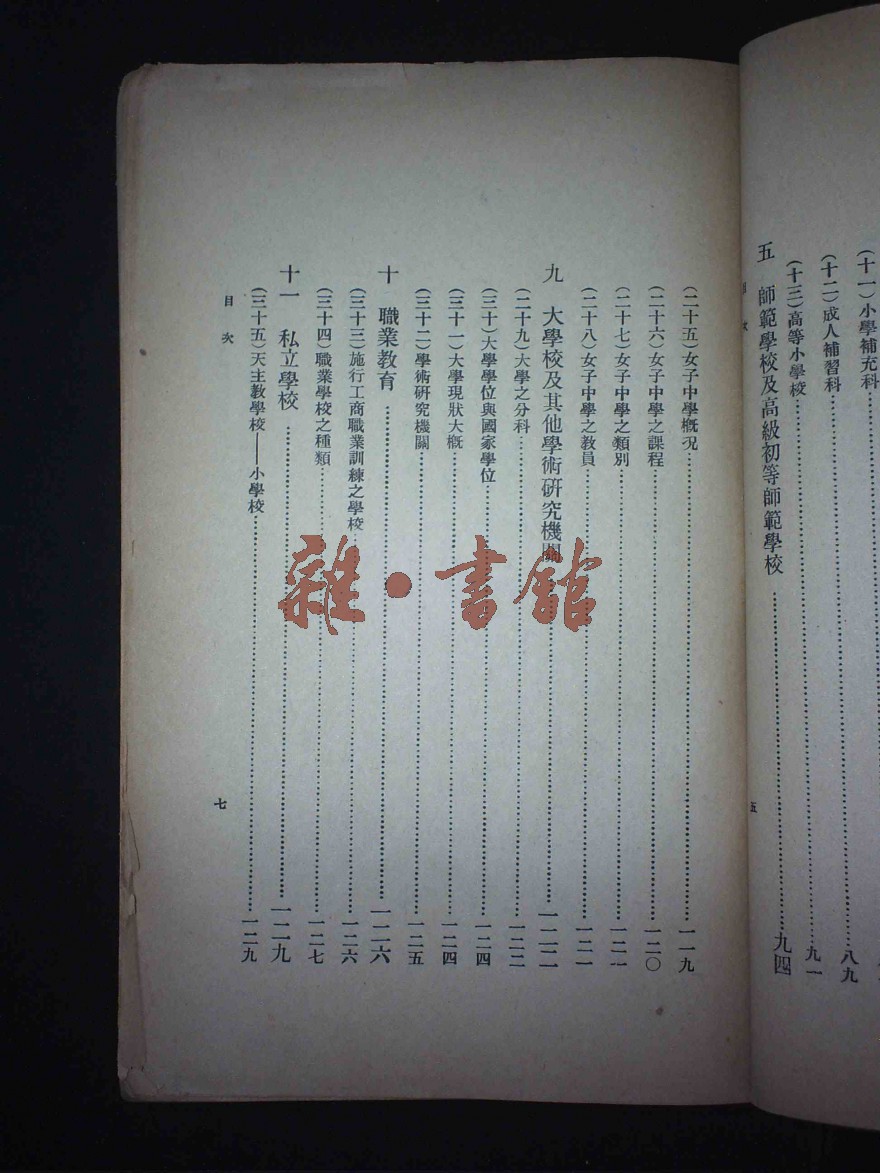 (十一)小學補充科
(十二)成人補習科……八九
(十三)高等小學校……九一
五 師範學校及高級初等師範學校……九四
目次
五
(二十五)女子中學概况……一一九
(二十六)女子中學之課程……一二〇
(二十七)女子中學之類別……一二一
(二十八)女子中學之教員……一二一
九 大學校及其他學術研究機關……一二二
(二十九)大學之分科……一二二
(三十)大學學位與國家學位……一二四
(三十一)大學現狀大概……一二四
(三十二)學術研究機關……一二五
十 職業教育……一二六
(三十三)施行工商職業訓練之學校……一二六
(三十四)職業學校之種類……一二七
十一 私立學校……一二九
(三十五)天主教學校——小學校……一二九
目次
七
雜·書館